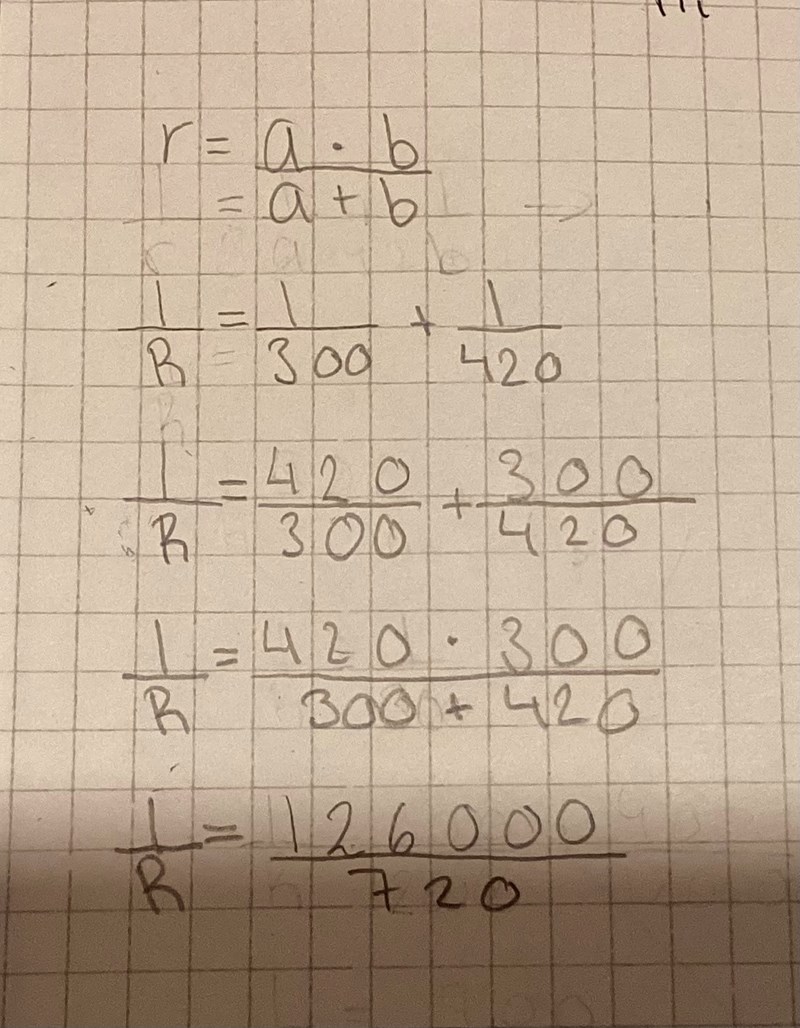 r = a · b
= a + b
1/R = 1/300 + 1/420
1/R = 420/300 + 300/420
1/R = 420 · 300 / 300 + 420
1/R = 126000/720